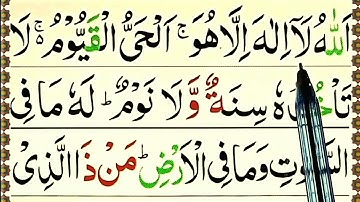 اَللّٰهُ لَآ اِلٰهَ اِلَّا هُوَ ۚ اَلْحَیُّ الْقَیُّوْمُ ۚ۬ لَا
تَاْخُذُهٗ سِنَةٌ وَّلَا نَوْمٌ ؕ لَهٗ مَا فِی
السَّمٰوٰتِ وَمَا فِی الْاَرْضِ ؕ مَنْ ذَا الَّذِیْ